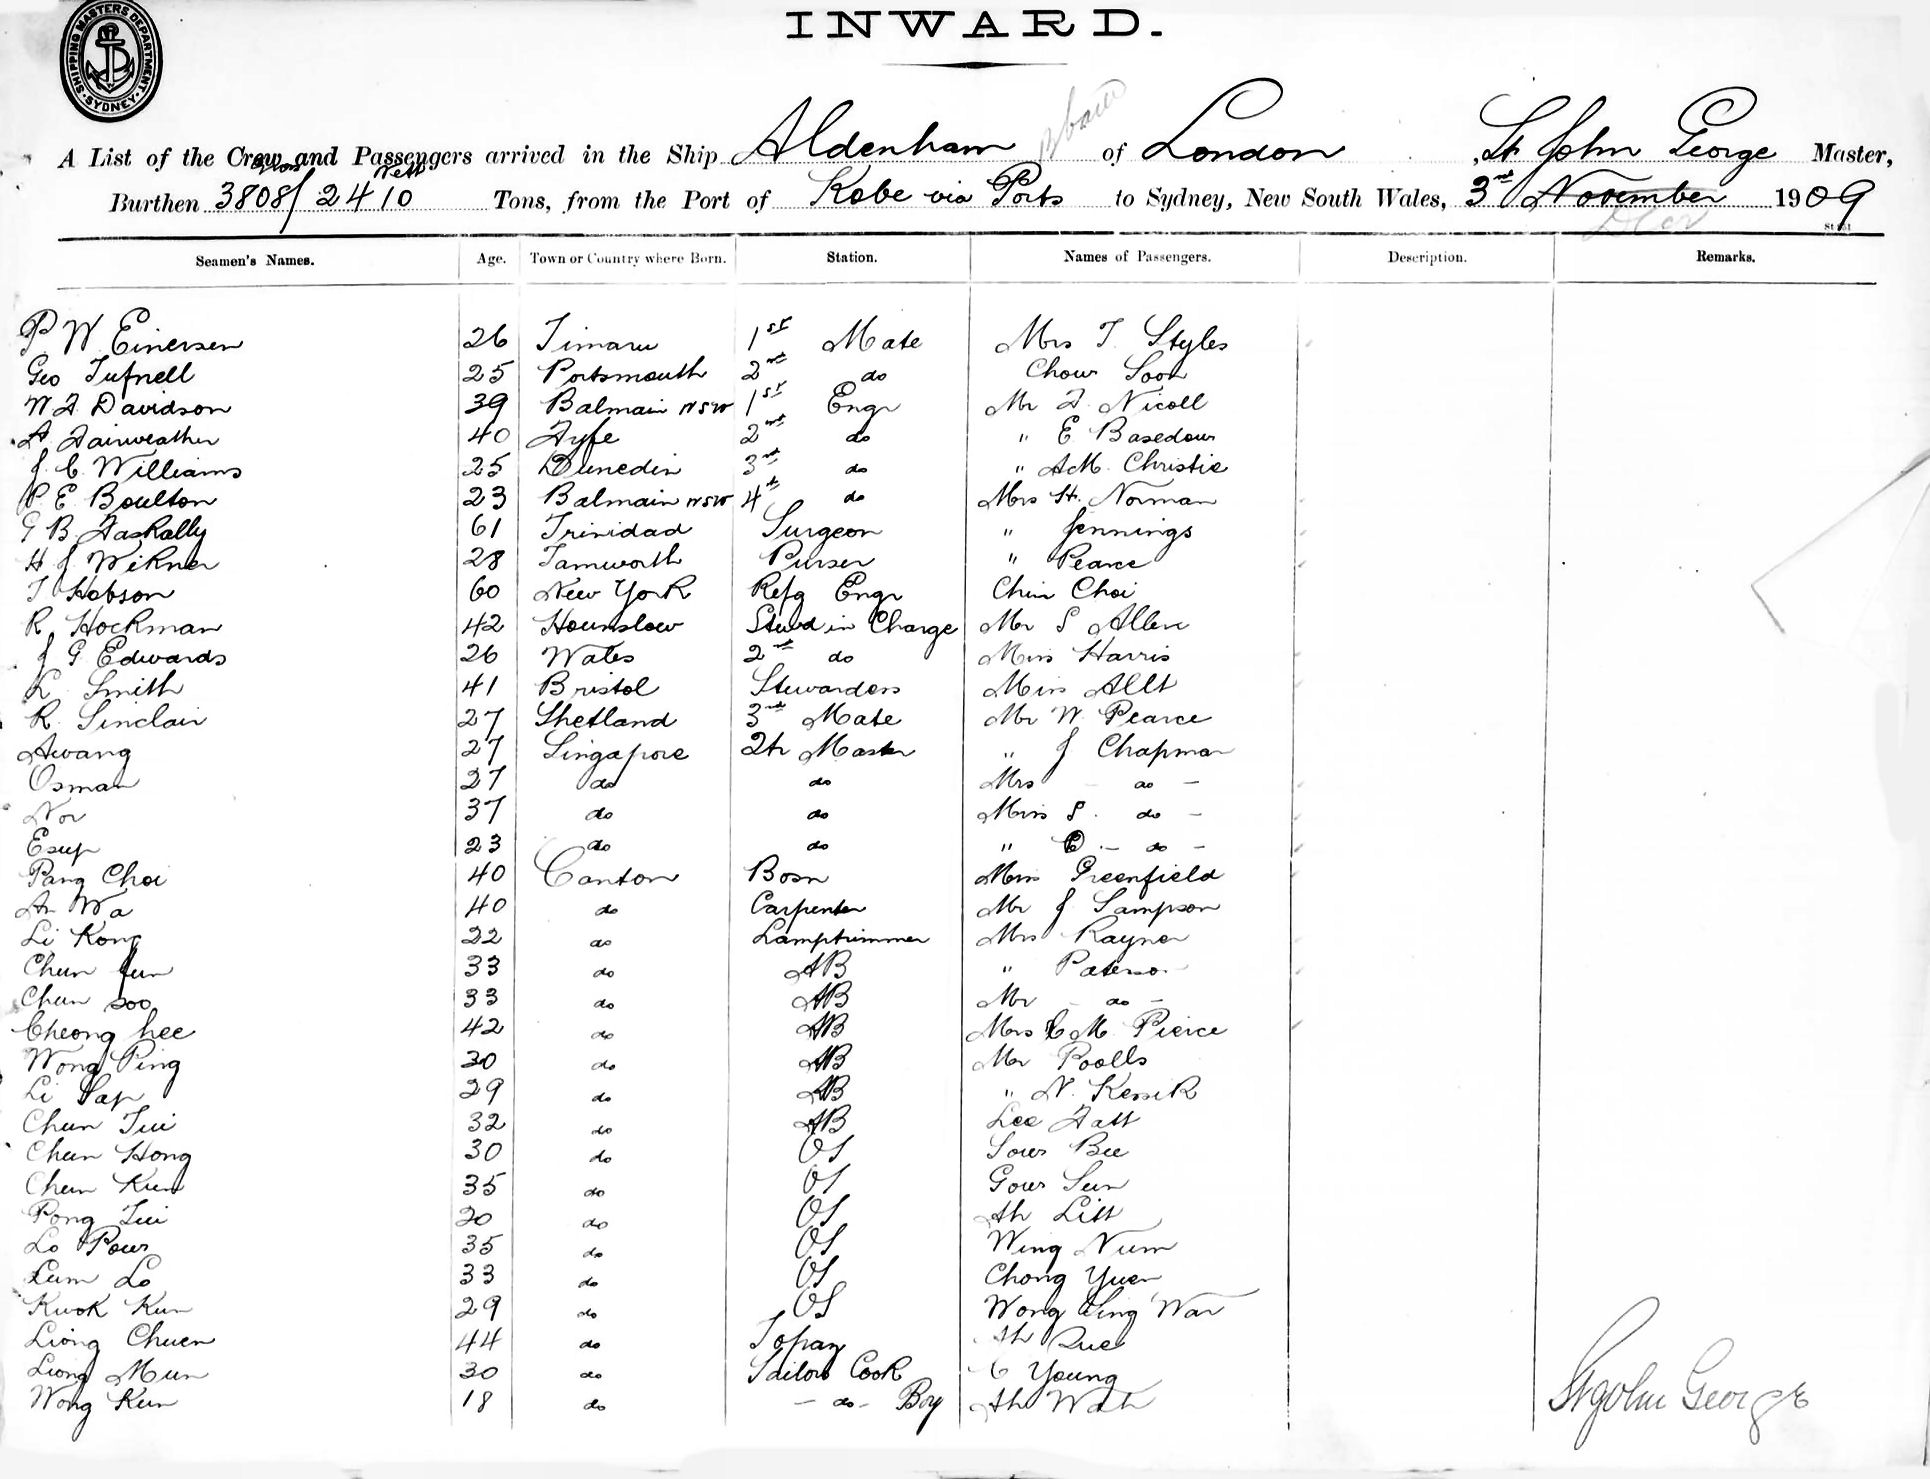 SHIPPING MASTERS DEPARTMENT. SYDNEY.
INWARD.
A List of the Crew and Passengers arrived in the Ship Aldenham of London St John George Master,
Gross Nett
Burthen 3808/2410 Tons, from the Port of Kobe via Ports to Sydney, New South Wales, 3rd November 1909
Seamen's Names. Age. Town or Country where Born. Station. Names of Passengers. Description. Remarks.
P W Einersen 26 Timaru 1st Mate Mrs T Styles
Geo Tufnell 25 Portsmouth 2nd do Chow Soon
W A Davidson 39 Balmain NSW 1st Engr Mr F. Nicoll
A Fairweather 40 Fyfe 2nd do " E Basedow
J C Williams 25 Dunedin 3rd do " A M. Christie
P E Boulton 23 Balmain NSW 4th do Mrs H. Norman
G B Faskally 61 Trinidad Surgeon " Jennings
H J Wikner 28 Tamworth Purser " Pearce
T Hobson 60 New York Refg Engr Chin Choi
R. Hockman 42 Hounslow Stewd in Charge Mr S Allen
J G Edwards 26 Wales 2nd do Miss Harris
L Smith 41 Bristol Stewardess Miss Allt
R. Sinclair 27 Shetland 3rd Mate Mr W. Pearce
Awang 27 Singapore Qtr Master " J Chapman
Osman 27 do do Mrs - do -
Nor 37 do do Miss S. do -
Esup 23 do do " C - do -
Pang Choi 40 Canton Bosn Miss Greenfield
Ar Wa 40 do Carpenter Mr J Sampson
Li Kong 22 do Lamptrimmer Mrs Rayner
Chun Jun 33 do AB " Paterson
Chun Soo 33 do AB Mr - do -
Cheong hee 42 do AB Mrs C M. Pierce
Wong Ping 30 do AB Mr Poolls
Li Sap 29 do AB " N. Kessik
Chun Tui 32 do AB Lee Fatt
Chun Hong 30 do OS Sow Bee
Chun Kun 35 do OS Gow Sun
Pong Tui 30 do OS Ah Litt
Lo Pow 35 do OS Wing Num
Lum Lo 33 do OS Chong Yuen
Kwok Kun 29 do OS Wong Sing War
Liong Chuen 44 do Topaz Ah Que
Liong Mun 30 do Sailors Cook C Young
Wong Kun 18 do - do - Boy Ah Wah
St John George